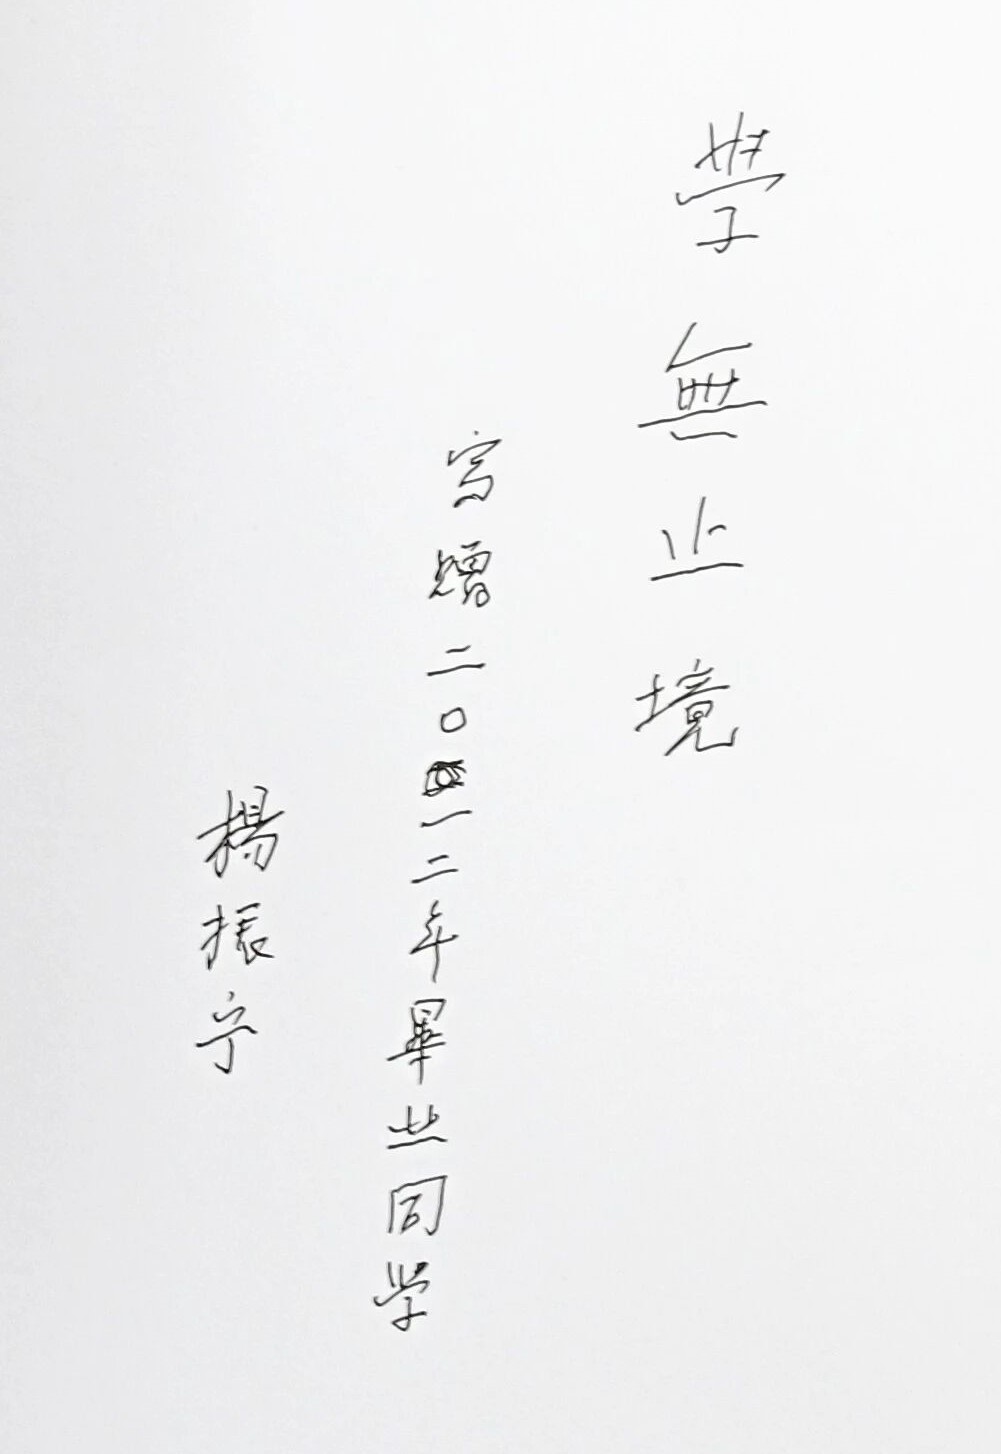 學無止境
写赠二〇一二年畢业同学
楊振宁